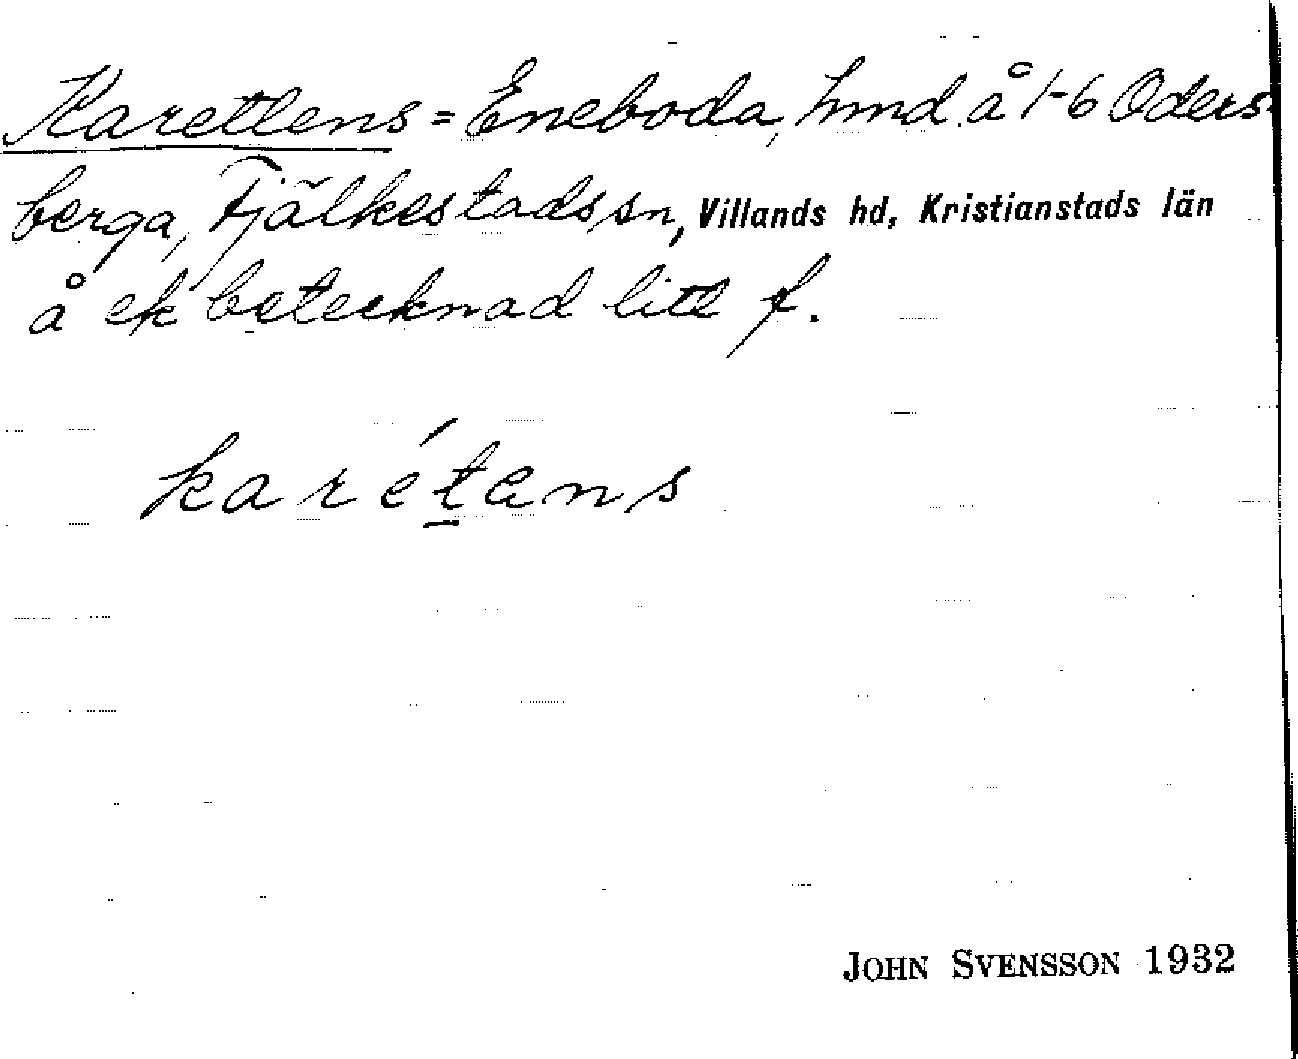 Karetlens = Eneboda, hmd å 1-6 Oders-
berga, Fjälkestads sn, Villands hd, Kristianstads län
å ek betecknad litt f.
karétens
JOHN SVENSSON 1932